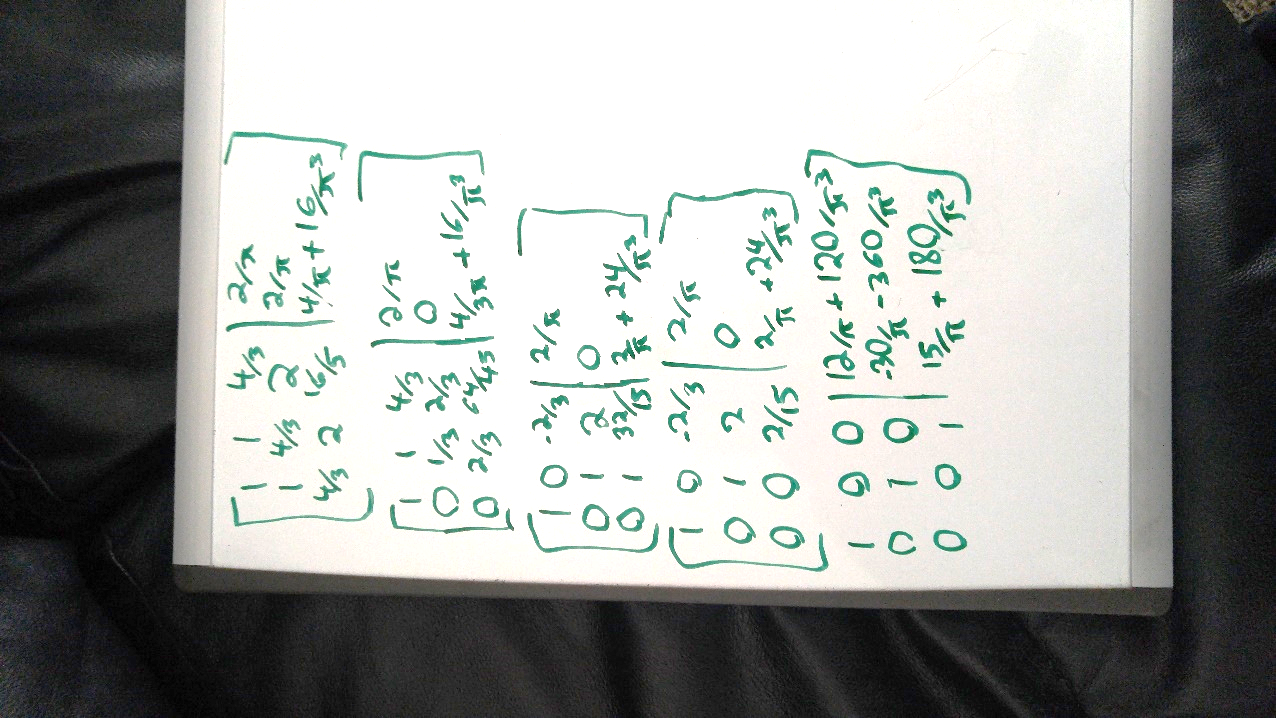 1 1 4/3 | 2/π
1 4/3 2 | 2/π
4/3 2 16/5 | 4/π + 16/π³
1 1 4/3 | 2/π
0 1/3 2/3 | 0
0 2/3 64/45 | 4/3π + 16/π³
1 0 -2/3 | 2/π
0 1 2 | 0
0 1 32/15 | 2/π + 24/π³
1 0 -2/3 | 2/π
0 1 2 | 0
0 0 2/15 | 2/π + 24/π³
1 0 0 | 12/π + 120/π³
0 1 0 | -30/π - 360/π³
0 0 1 | 15/π + 180/π³